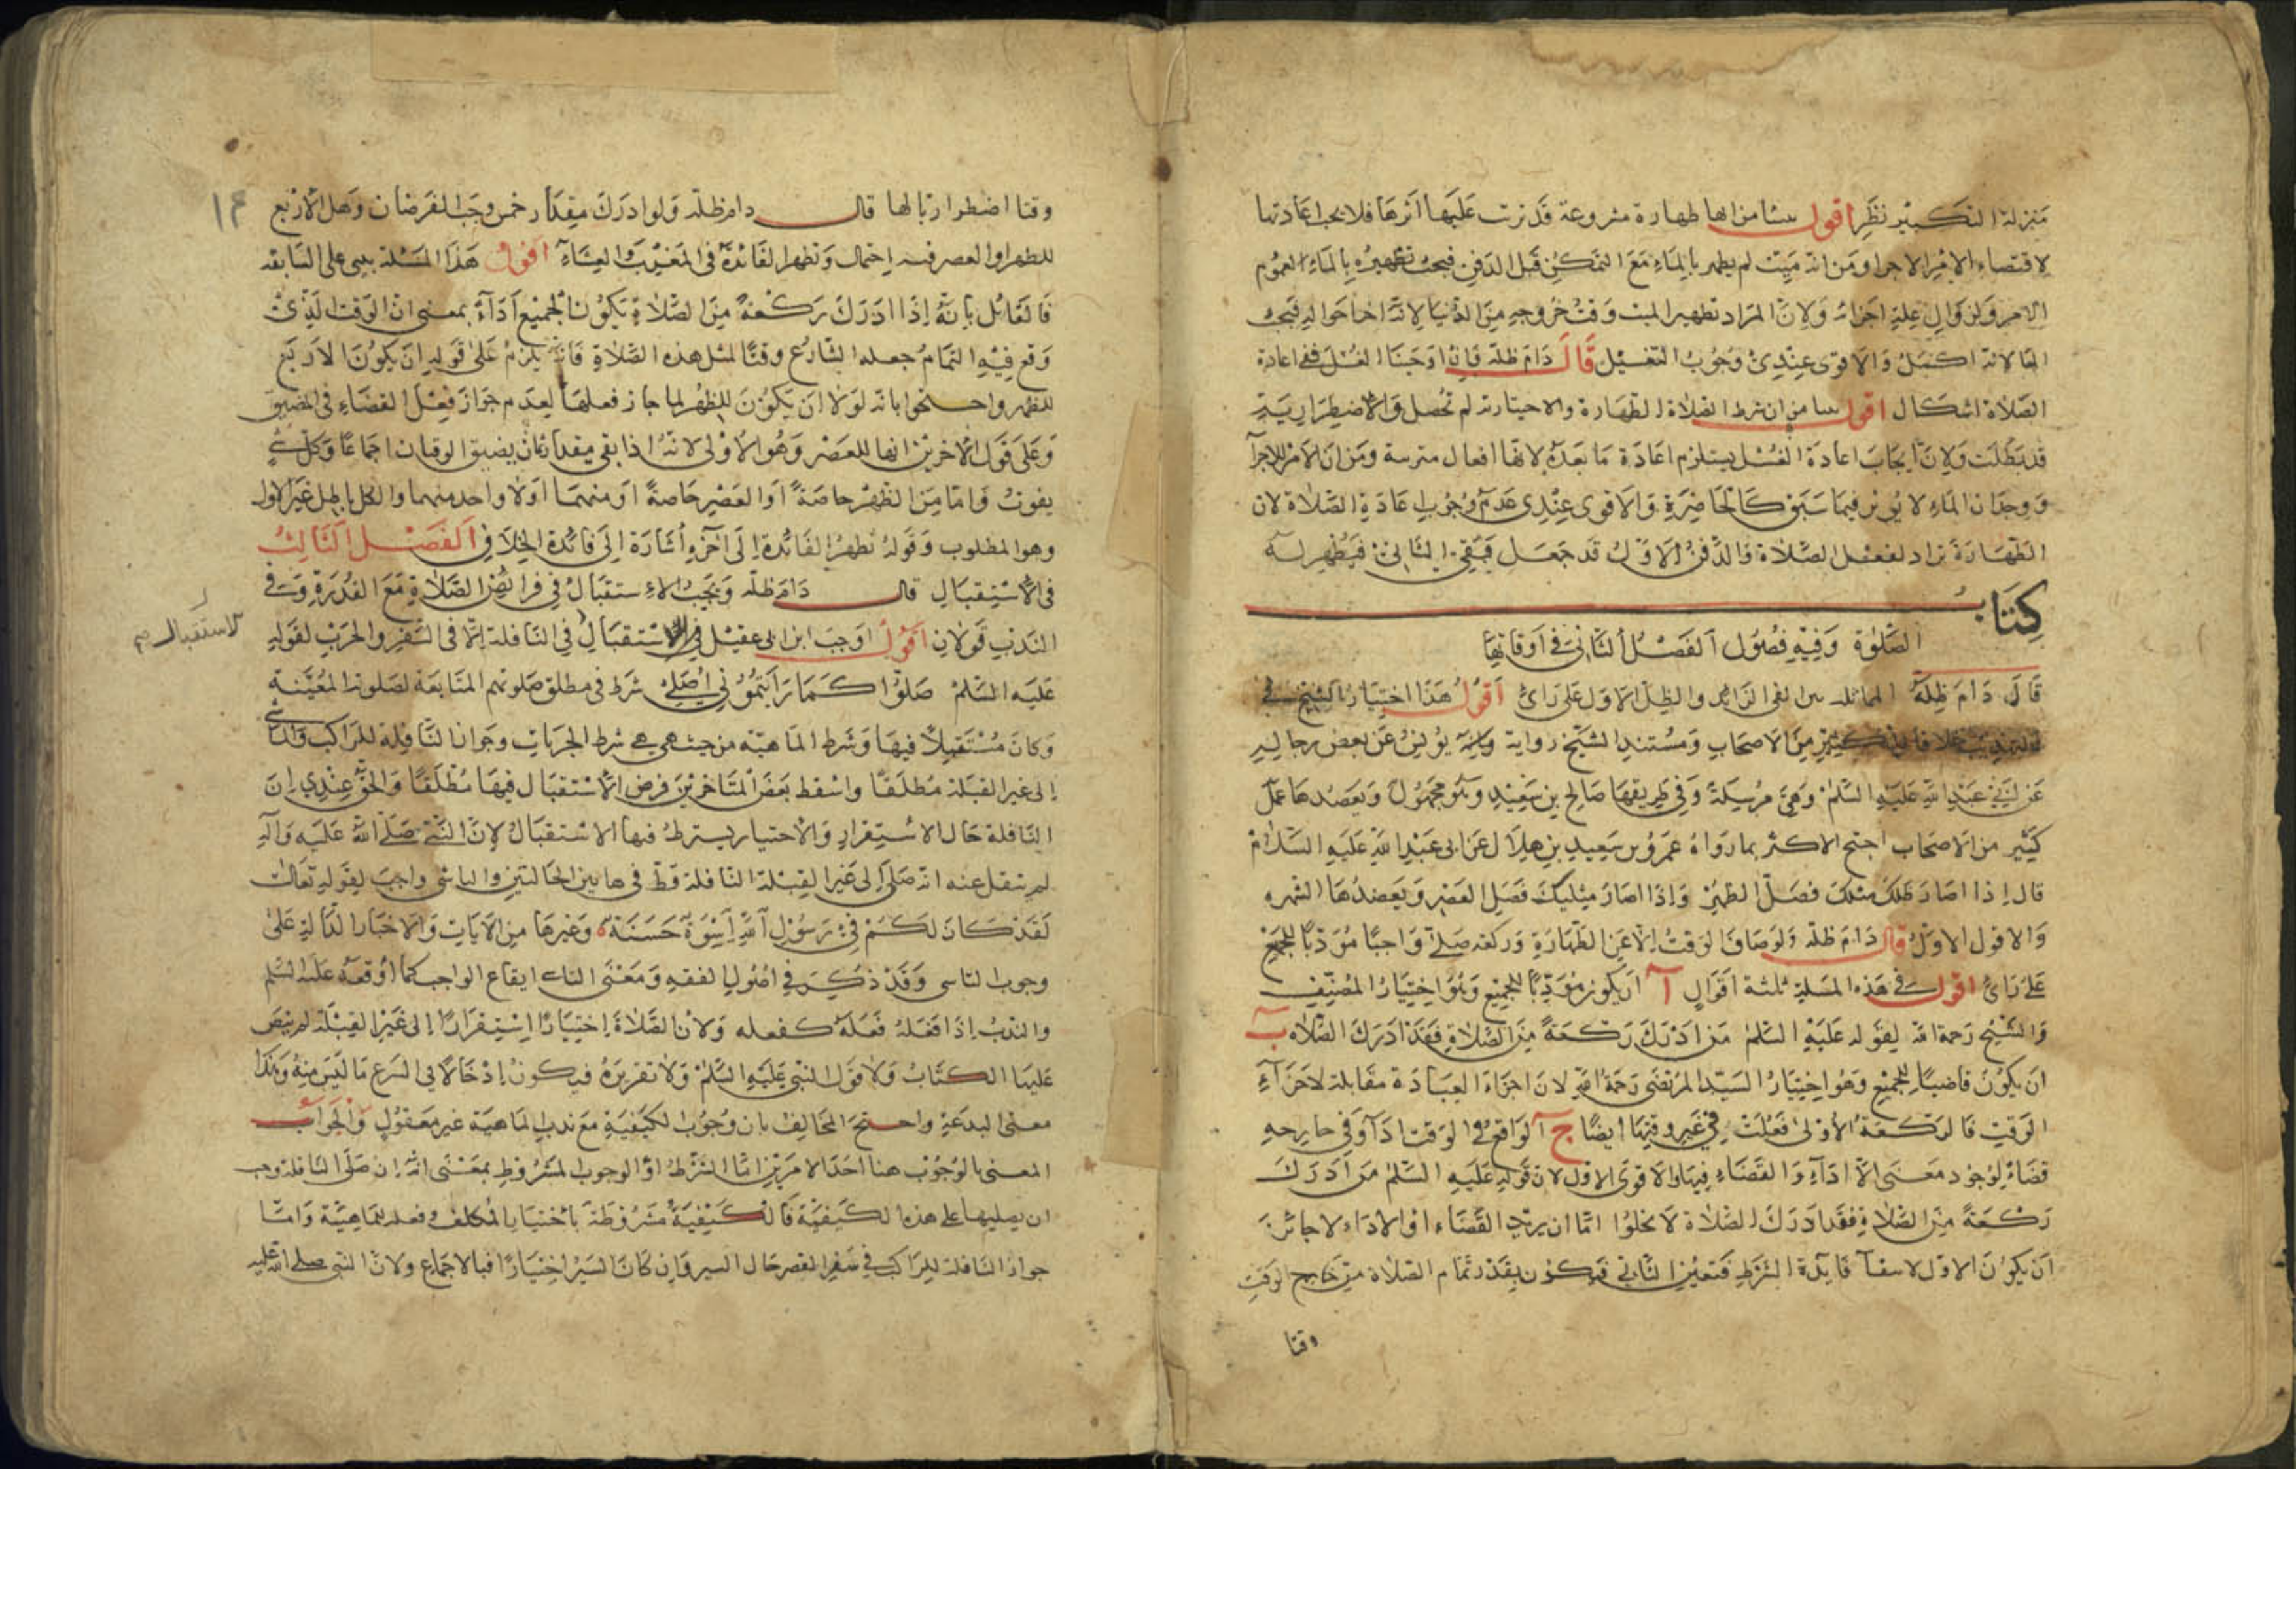 منزلة التكبير نظر اقول ينشا من انها طهارة مشروعة قد ترتب عليها اثرها فلا يجب اعادتها
لاقتضاء الامر الاجزاء ومن انه ميت لم يطهر بالماء مع التمكن قبل الدفن فيجب تطهيره بالماء لعموم
الامر ولزوال علة اجزائه ولان المراد تطهير الميت وقت خروجه من الدنيا لانه اخر احواله فيجب
لانه اكمل والاقوى عندي وجوب التغسيل قال دام ظله فان اوجبنا الغسل ففي اعادة
الصلاة اشكال اقول ينشا من ان شرط الصلاة الطهارة والاختيارية لم تحصل والاضطرارية
قد بطلت ولان ايجاب اعادة الغسل يستلزم اعادة ما بعده لانها افعال مترتبة ومن ان الامر للاجزآ
ووجدان الماء لا يؤثر فيما سبق كالحاضرة والاقوى عندي عدم وجوب اعادة الصلاة لان
الطهارة تراد لفعل الصلاة والدفن والاول قد حصل فبقي الثاني فيطهر له
كتاب
الصلوة وفيه فصول الفصل الثاني في اوقاتها
قال دام ظله المماثلة بين الفئ الزائد والظل الاول على رأي اقول هذا اختيار الشيخ في
التهذيب خلافا لكثير من الاصحاب ومستند الشيخ رواية يونس عن بعض رجاله
عن ابي عبد الله عليه السلم وهي مرسلة وفي طريقها صالح بن سعيد وهو مجهول ويعضدها عمل
كثير من الاصحاب احتج الاكثر بما رواه عمرو بن سعيد بن هلال عن ابي عبد الله عليه السلام
قال اذا صار ظلك مثلك فصل الظهر واذا صار مثليك فصل العصر ويعضدها الشهره
والاقوى الاول قال دام ظله ولو ضاق الوقت الا عن الطهارة وركعة صلى واجبا مؤديا للجميع
على رأي اقول في هذه المسلة ثلثة اقوال آ ان يكون مؤديا للجميع وهو اختيار المصنف
والشيخ رحمة الله لقوله عليه السلم من ادرك ركعة من الصلاة فقد ادرك الصلاة ب
ان يكون قاضيا للجميع وهو اختيار السيد المرتضى رحمة الله لان اجزاء العبادة مقابلة لاجزآء
الوقت فالركعة الاولى فعلت في غير وقتها ايضا ج الواقع في الوقت ادآ وفي خارجه
قضاء لوجود معنى الاداء والقضاء فيها والاقوى الاول لان قوله عليه السلم من ادرك
ركعة من الصلاة فقد ادرك الصلاة لا يخلوا اما ان يريد القضاء او الاداء لا جائز
ان يكون الاول لانتفآ فايدة الشرط فتعين الثاني فيكون بقدر تمام الصلاة من خارج الوقت
وقتا
وقتا اضطراريا لها قال دام ظله ولو ادرك مقدار خمس وجب الفرضان وهل الاربع
للظهر او العصر فيه احتمال وتظهر الفائدة في المغرب والعشاء اقول هذه المسئلة يبنى على السابقه
فالقائل بانه اذا ادرك ركعة من الصلاة يكون الجميع اداء بمعنى ان الوقت الذي
وقع فيه التمام جعله الشارع وقتا لمثل هذه الصلاة فانه يلزم على قوله ان يكون الاربع
للظهر واحتجوا بانه لولا ان يكون للظهر لما جاز فعلها لعدم جواز فعل القضاء في المضيق
وعلى قول الاخرين انها للعصر وهو الاولى لانه اذا بقي مقدار ثمان يضيق الوقتان اجماعا وكل شئ
يفوت فاما من الظهر خاصة او العصر خاصة او منهما اولا واحد منهما والكل باطل غير الاول
وهو المطلوب وقوله تظهر الفائدة الى آخره اشارة الى فائدة الخلاف الفصل الثالث
في الاستقبال قال دام ظله ويجب الاستقبال في فرائض الصلاة مع القدرة وفي
الندب قولان اقول اوجب ابن ابي عقيل الاستقبال في النافلة الا في السفر والحرب لقوله
الاستقبال صح
عليه السلم صلوا كما رايتموني اصلي شرط في مطلق صلوتهم المتابعة لصلوته المعينة
وكان مستقبلا فيها وشرط الماهية من حيث هي هي شرط الجزئيات وجواز النافلة للراكب والماشي
الى غير القبلة مطلقا واسقط بعض المتاخرين فرض الاستقبال فيها مطلقا والحق عندي ان
النافلة حال الاستقرار والاختيار يشترط فيها الاستقبال لان النبي صلى الله عليه وآله
لم ينقل عنه انه صلى الى غير القبلة النافلة قط في هاتين الحالتين والتاسي واجب لقوله تعالى
لقد كان لكم في رسول الله اسوة حسنة وغيرها من الايات والاخبار الدالة على
وجوب التاسي وقد ذكر في اصول الفقه ومعنى التاسي ايقاع الواجب كما اوقعه عليه السلم
والندب اذا فعله فعله كفعله ولان الصلاة اختيارا استقرارا الى غير القبلة لم ينص
عليها الكتاب ولا قول النبي عليه السلم ولا تقريره فيكون ادخالا في الشرع ما ليس منه وهذا
معنى البدعة واحتج المخالف بان وجوب الكيفية مع ندب الماهية غير معقول والجواب
المعنى بالوجوب هنا احد الامرين اما الشرط او الوجوب المشروط بمعنى انه ان صلى النافلة وجب
ان يصليها على هذه الكيفية فالكيفية مشروطة باختيار المكلف وفعله للماهية واما
جواز النافلة للراكب في سفر القصر حال السير وان كان السير اختيارا فبالاجماع ولان النبي صلى الله عليه